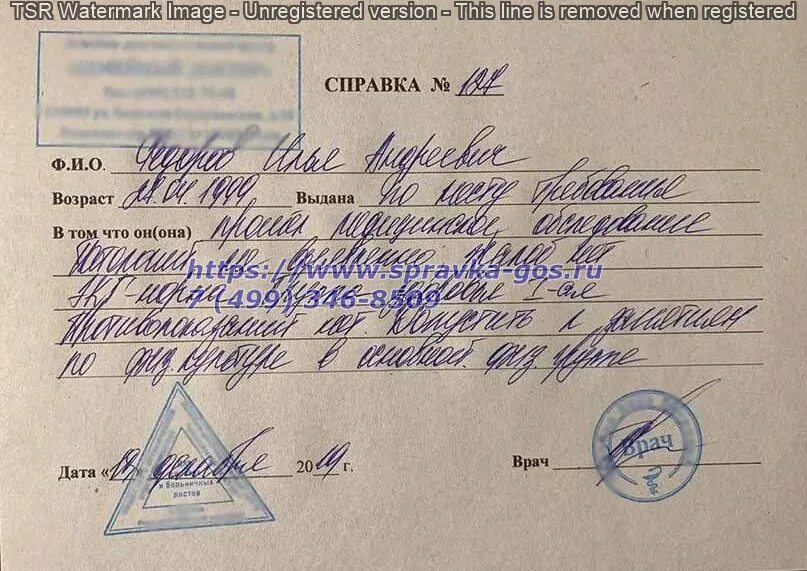 TSR Watermark Image - Unregistered version - This line is removed when registered
СПРАВКА № 127
Ф.И.О. Федоров Илья Андреевич
Возраст 27.04.1999 Выдана по месту требования
В том что он(она) прошел медицинское обследование
Патологий не выявлено Жалоб нет
https://www.spravka-gos.ru
ЭКГ-норма Группа здоровья I-ая
7 (499) 346-8509
Противопоказаний нет. Допустить к занятиям
по физ.культуре в основной физ. группе
Дата «12» декабря 2019 г.
Врач
Врач
и больничных
листов